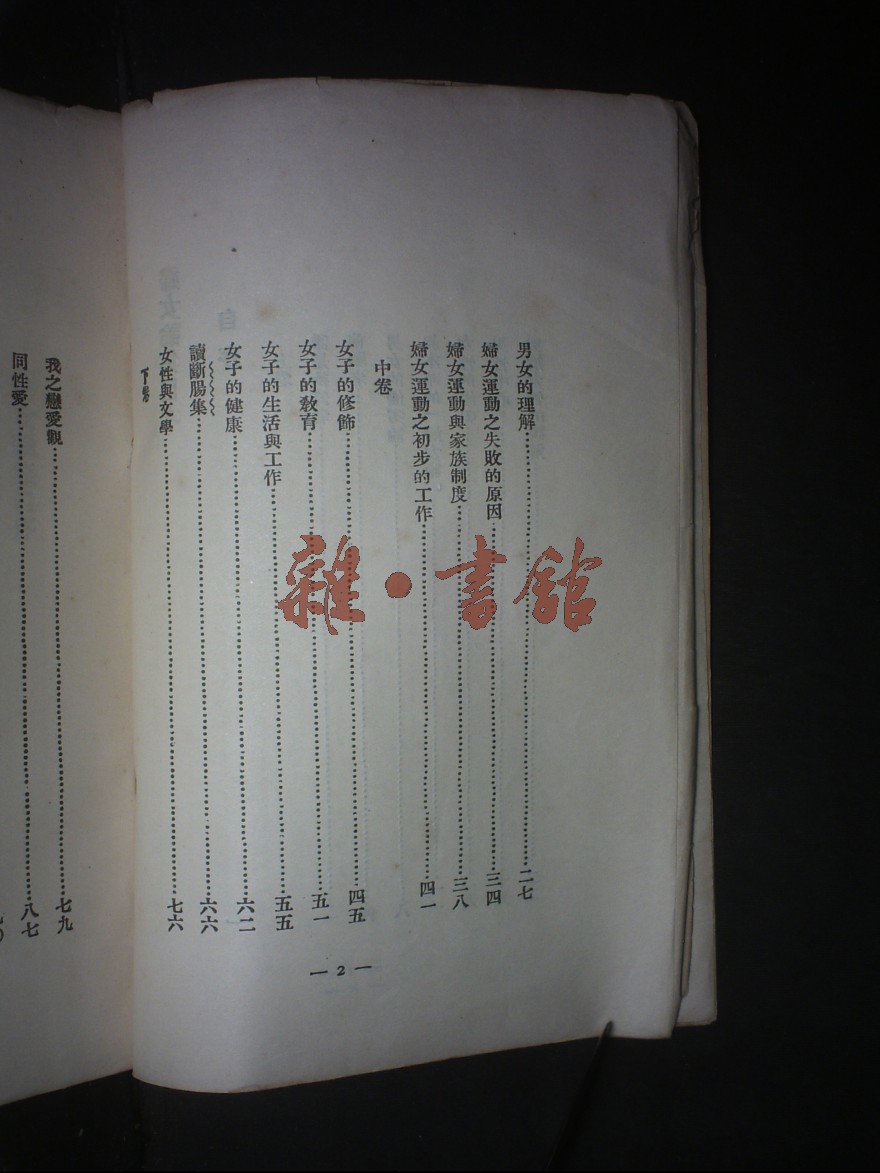 男女的理解……二七
婦女運動之失敗的原因……三四
婦女運動與家族制度……三八
婦女運動之初步的工作……四一
中卷
女子的修飾……四五
女子的教育……五一
女子的生活與工作……五五
女子的健康……六二
讀斷腸集……六六
女性與文學……七六
下卷
— 2 —
我之戀愛觀……七九
同性愛……八七
雜·書館